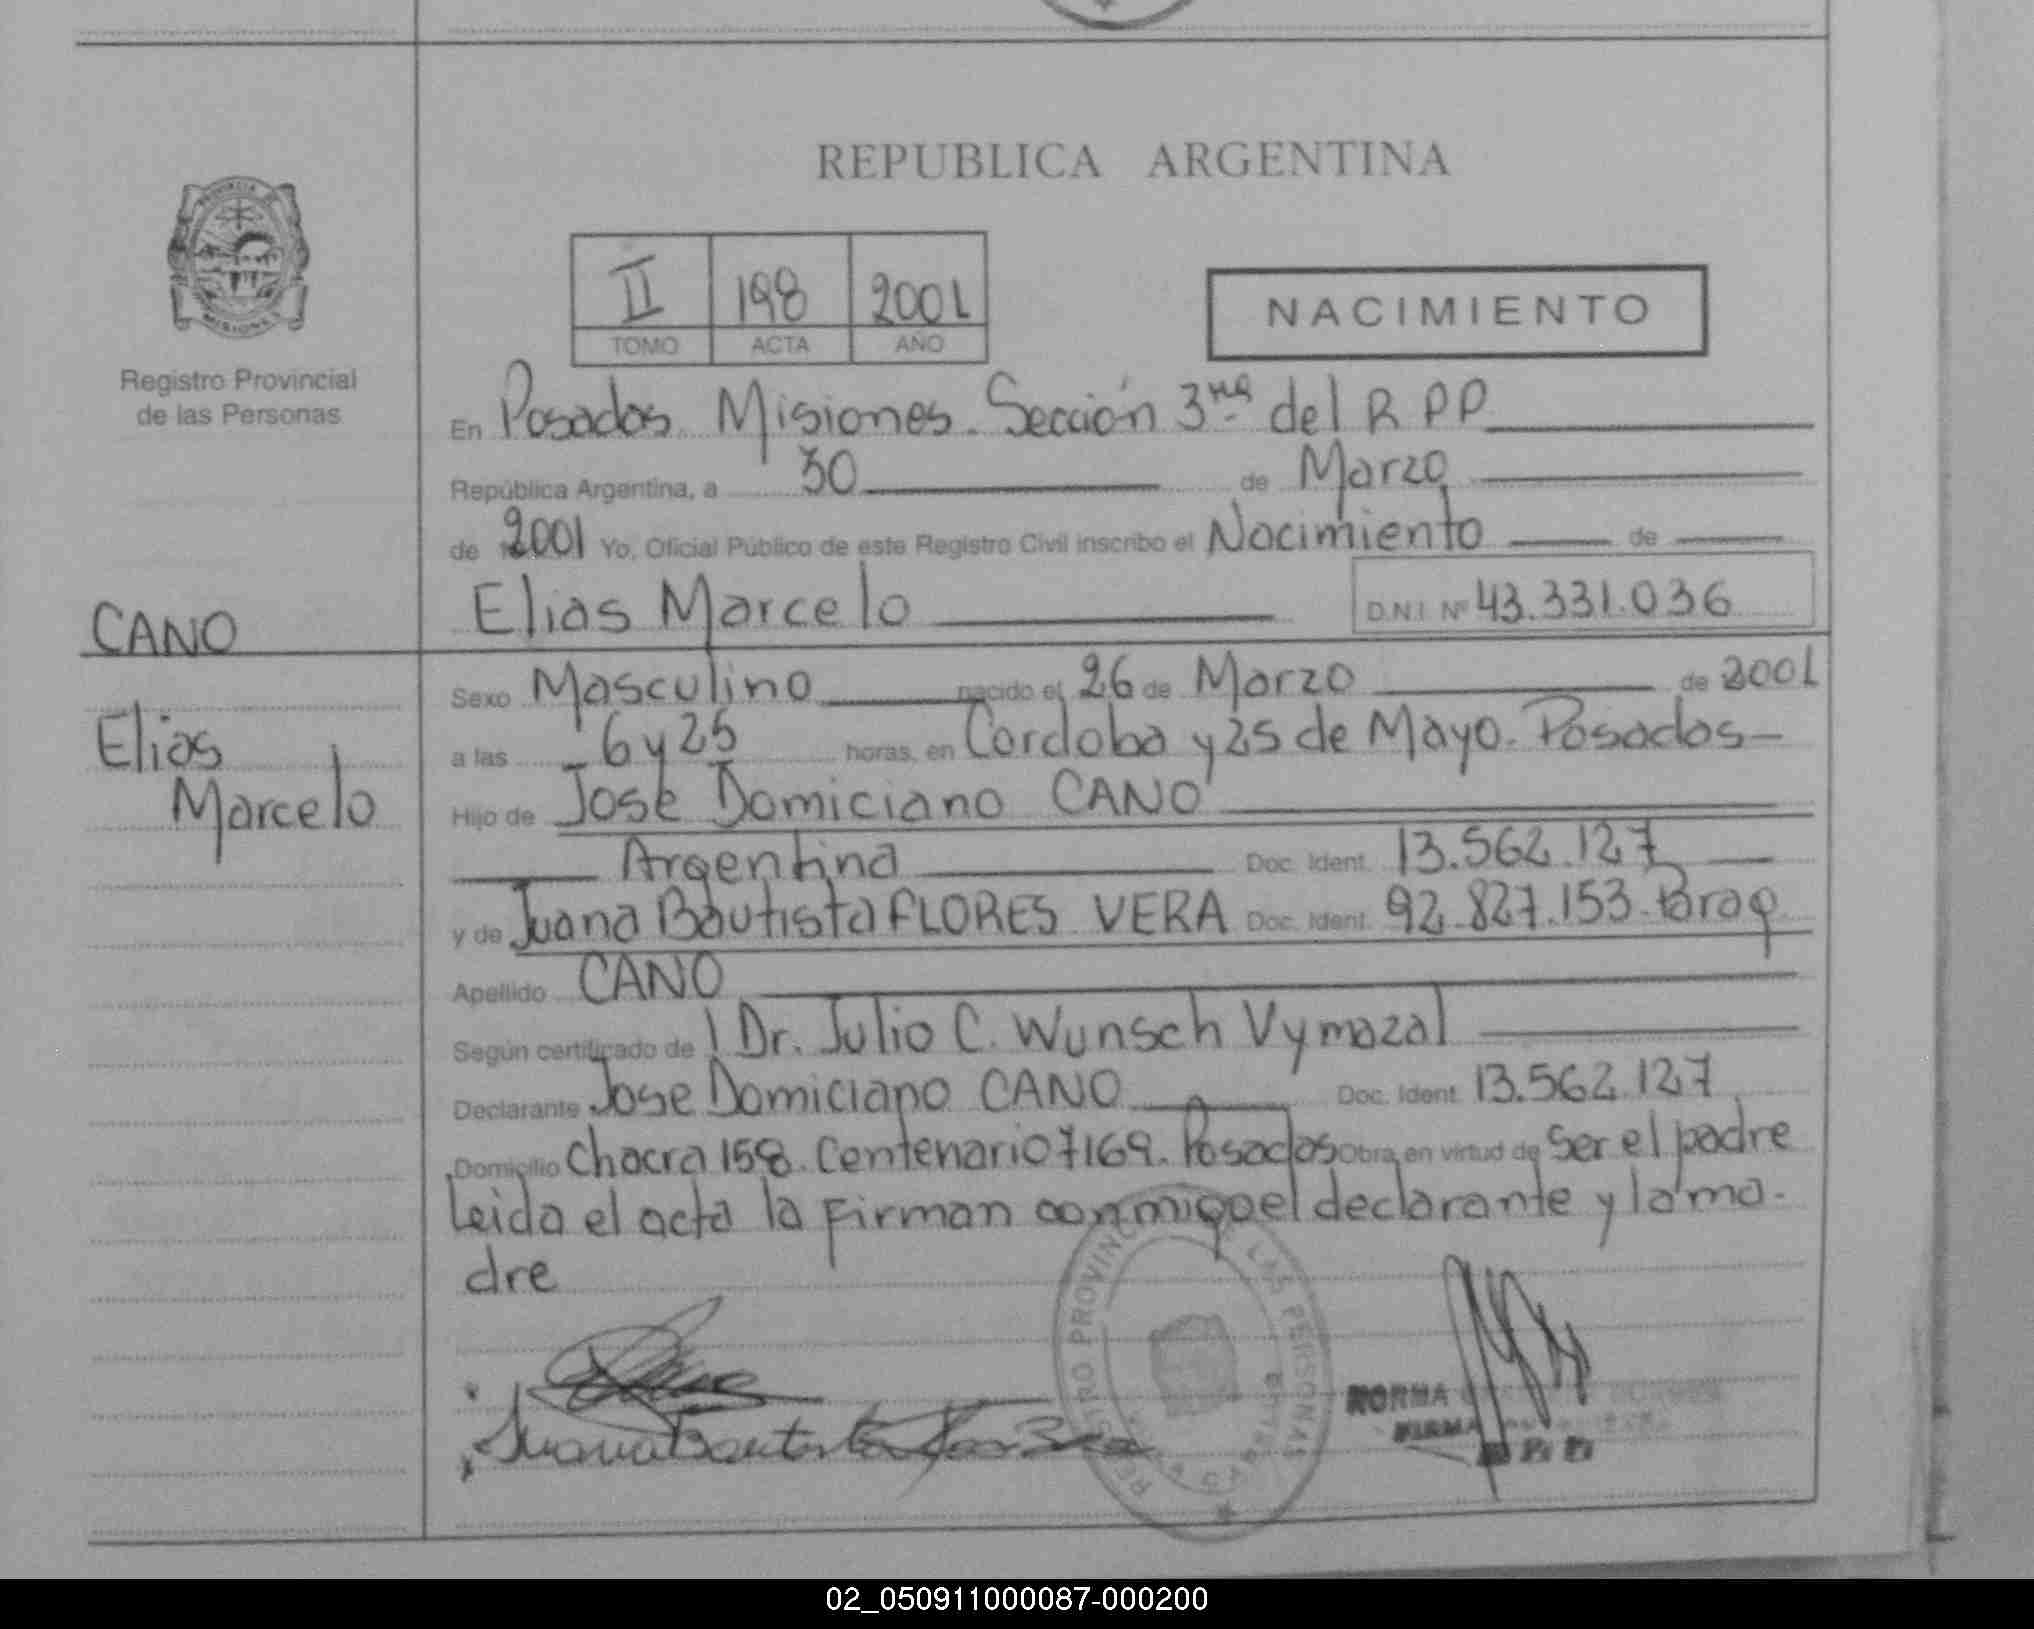 REPUBLICA ARGENTINA
PROVINCIA DE
MISIONES
Registro Provincial
de las Personas
II 198 2001
TOMO ACTA AÑO
NACIMIENTO
En Posadas. Misiones. Sección 3ra del R P P
República Argentina, a 30 de Marzo
de 2001 Yo, Oficial Público de este Registro Civil inscribo el Nacimiento de
Elias Marcelo D.N.I. Nº 43.331.036
CANO
Elias
Marcelo
Sexo Masculino nacido el 26 de Marzo de 2001
a las 6 y 25 horas, en Cordoba y 25 de Mayo. Posadas
Hijo de Jose Domiciano CANO
Argentina Doc. Ident. 13.562.127
y de Juana Bautista FLORES VERA Doc. Ident. 92.827.153. Parag
Apellido CANO
Según certificado de l Dr. Julio C. Wunsch Vymazal
Declarante Jose Domiciano CANO Doc. Ident. 13.562.127
Domicilio Chacra 158. Centenario 7169. Posadas Obra en virtud de Ser el padre
Leida el acta la Firman conmigo el declarante y la ma-
dre
REGISTRO PROVINCIAL DE LAS PERSONAS
Juana Bautista
NORMA
FIRMA
02_050911000087-000200